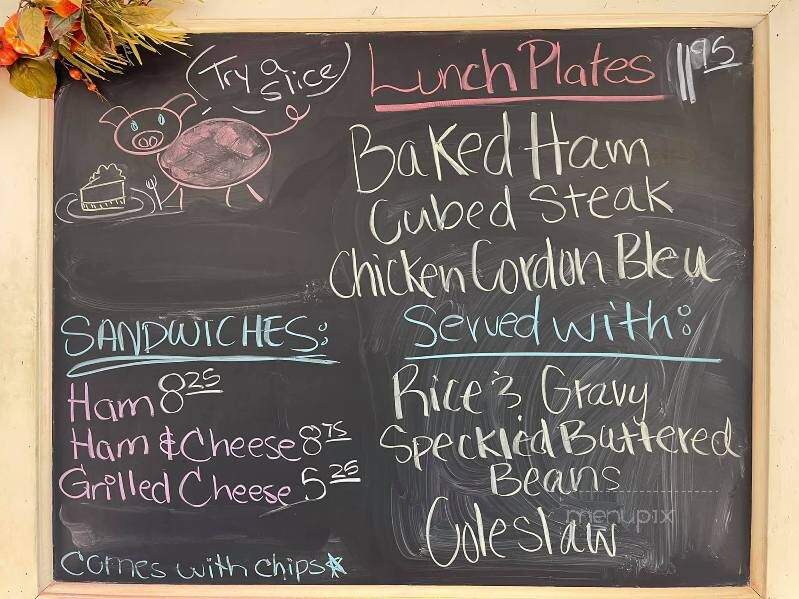 Try a
slice
Lunch Plates 11.95
Baked Ham
Cubed Steak
Chicken Cordon Bleu
SANDWICHES:
Ham 8.25
Ham & Cheese 8.75
Grilled Cheese 5.25
Comes with chips*
Served with:
Rice & Gravy
Speckled Buttered
Beans
Coleslaw
menupix